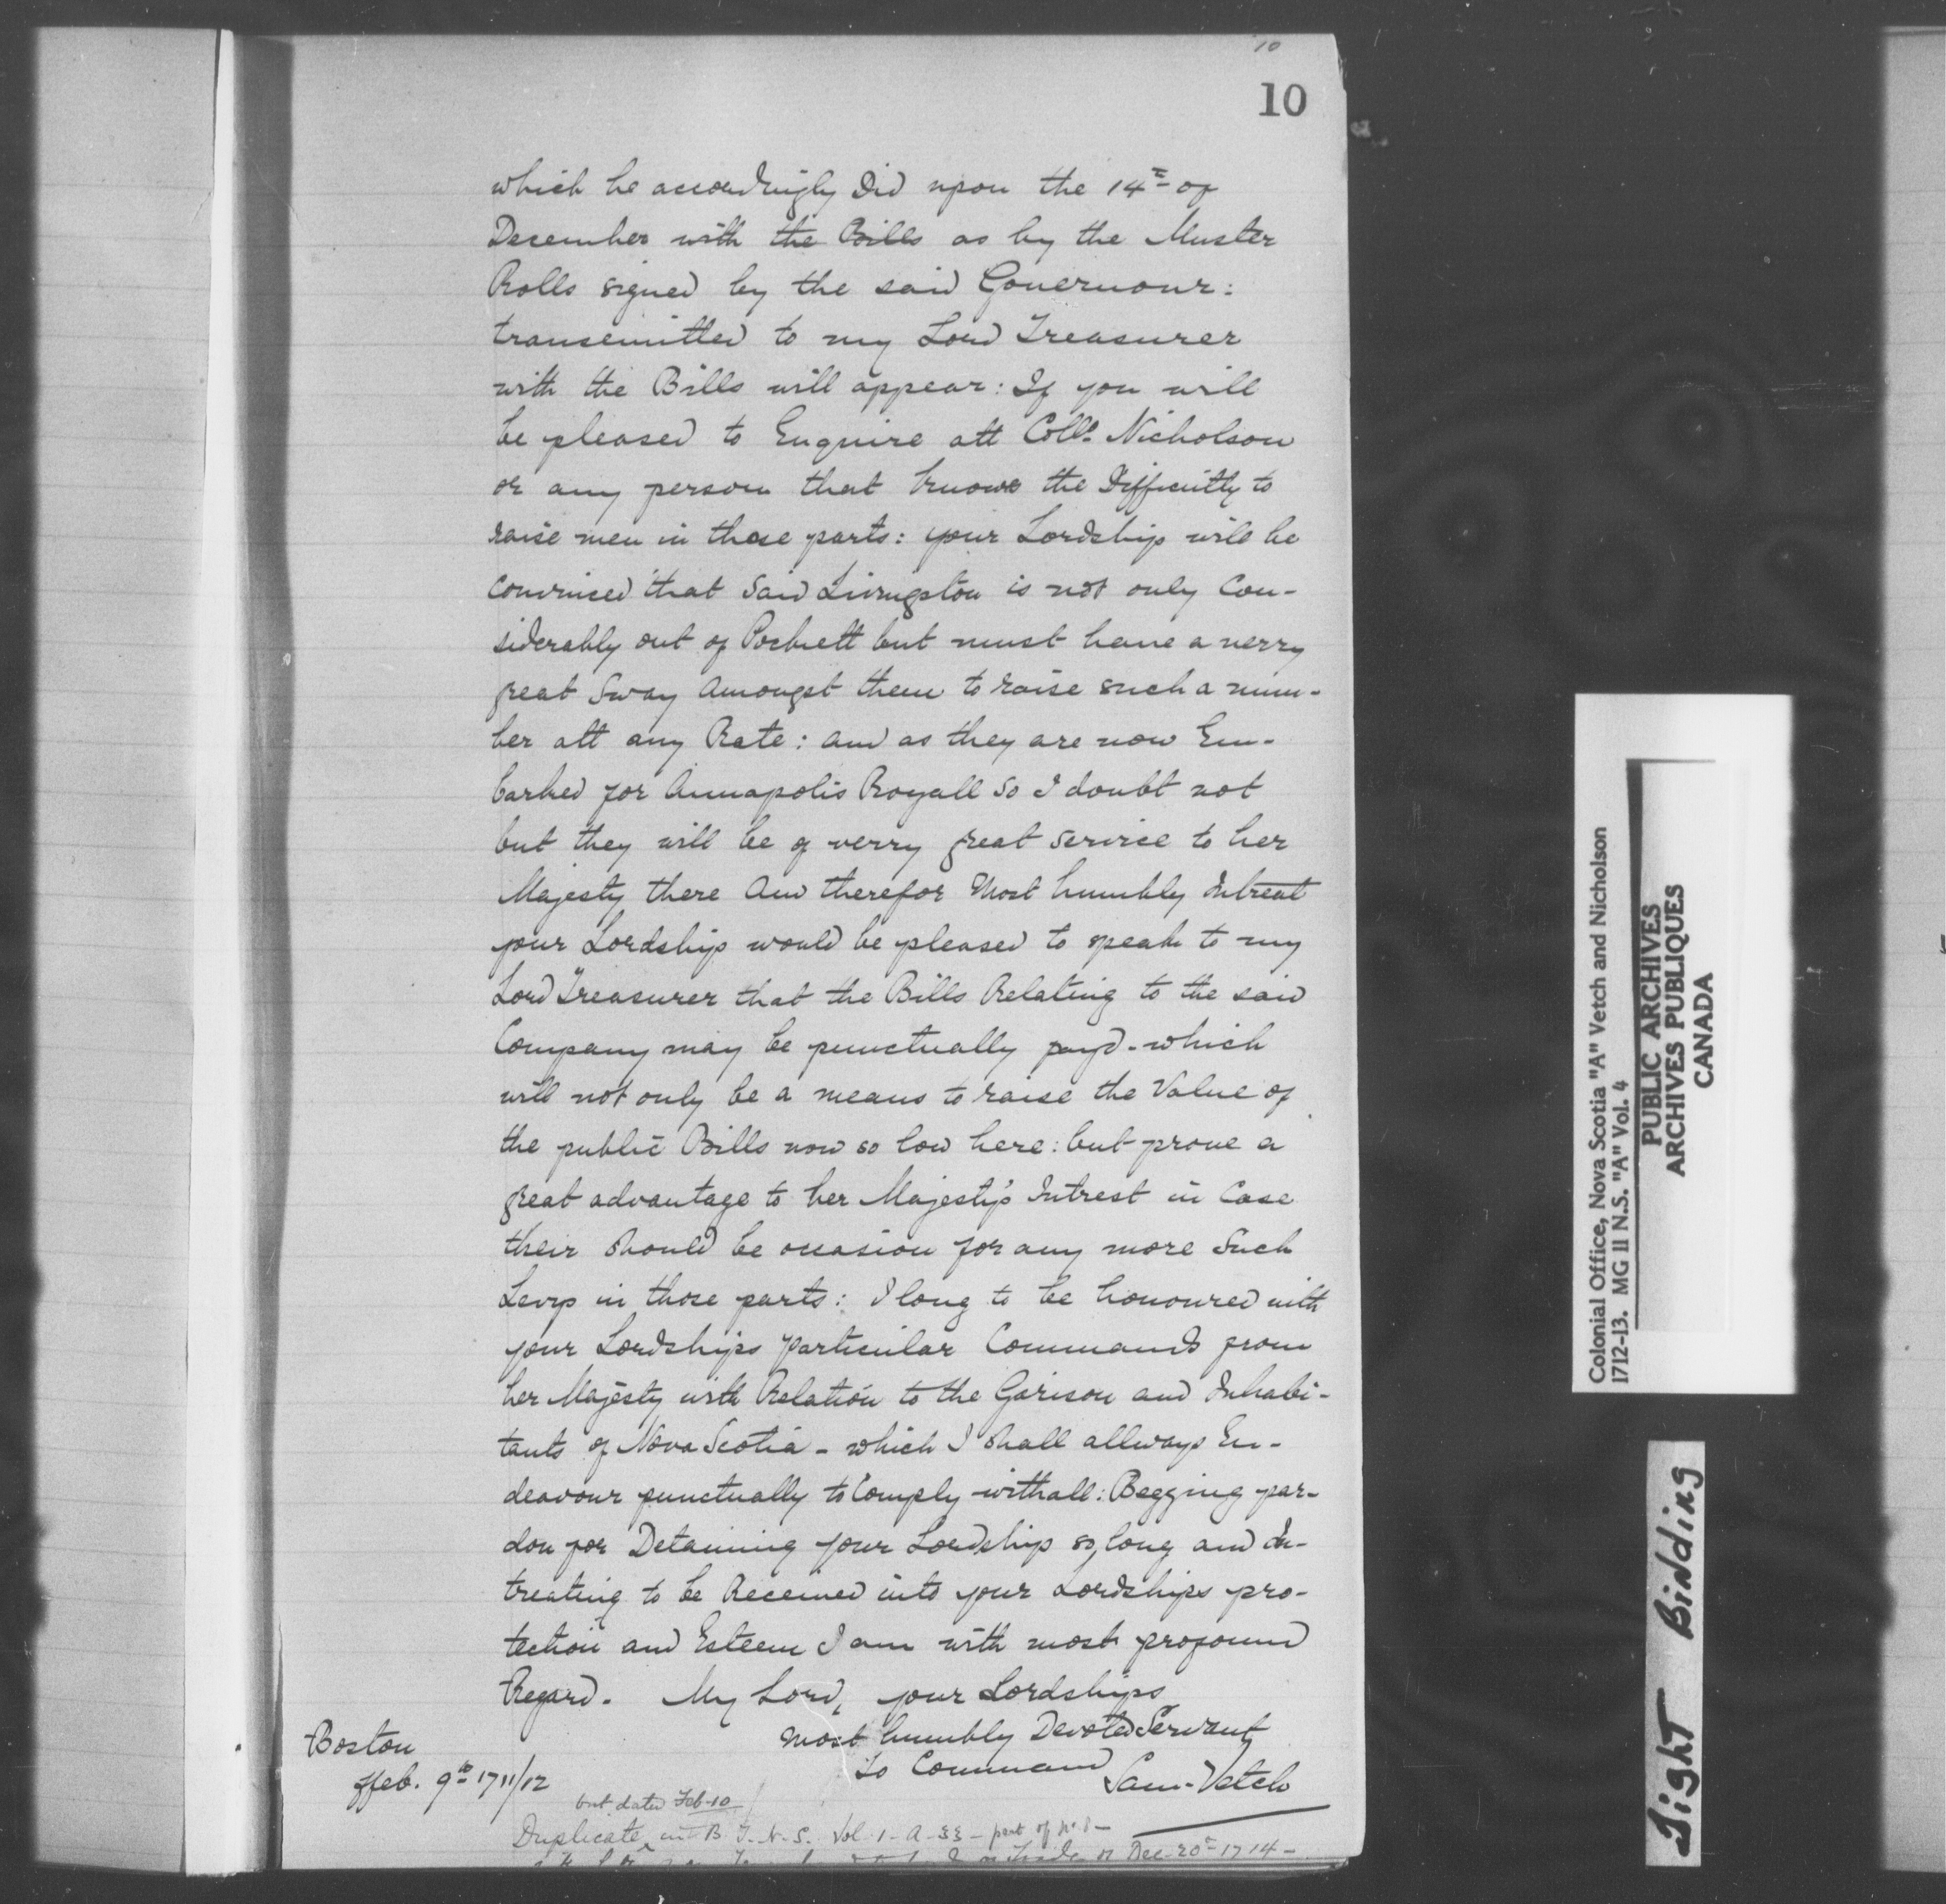 10
10
which he accordingly Did upon the 14th of
December with the Bills as by the Muster
Rolls signed by the said Governour:
transemitted to my Lord Treasurer
with the Bills will appear: If you will
be pleased to Enquire att Collo. Nicholson
or any person that knows the Difficulty to
raise men in those parts: your Lordship will be
convinced that said Livingston is not only Con-
siderably out of Pockett but must have a verry
great Sway Amongst them to raise such a num-
ber att any Rate: and as they are now Em-
barked for Annapolis Royall So I doubt not
but they will be of verry great service to her
Majesty there And therefor Most humbly Intreat
your Lordship would be pleased to speak to my
Lord Treasurer that the Bills Relating to the said
Company may be punctually payd - which
will not only be a means to raise the Value of
the public Bills now so low here: but prove a
great advantage to her Majesty's Intrest in Case
their should be occasion for any more Such
Levys in those parts: I long to be honoured with
your Lordships particular Commands from
her Majesty with Relation to the Garison and Inhabi-
tants of Nova Scotia - which I shall allways En-
deavour punctually to Comply withall: Begging par-
don for Detaining your Lordship so long and In-
treating to be Received into your Lordships pro-
tection and Esteem I am with most profound
Regard. My Lord, your Lordships
most humbly Devoted Servant
to Command Sam. Vetch
Boston
ffeb. 9th 1711/12
but dated Feb-10
Duplicate in B.T.N.S. Vol. 1-A-33 - part of No. 8-
Dec-20th-1714-
Colonial Office, Nova Scotia "A" Vetch and Nicholson
1712-13. MG 11 N.S. "A" Vol. 4
PUBLIC ARCHIVES
ARCHIVES PUBLIQUES
CANADA
Tight Binding